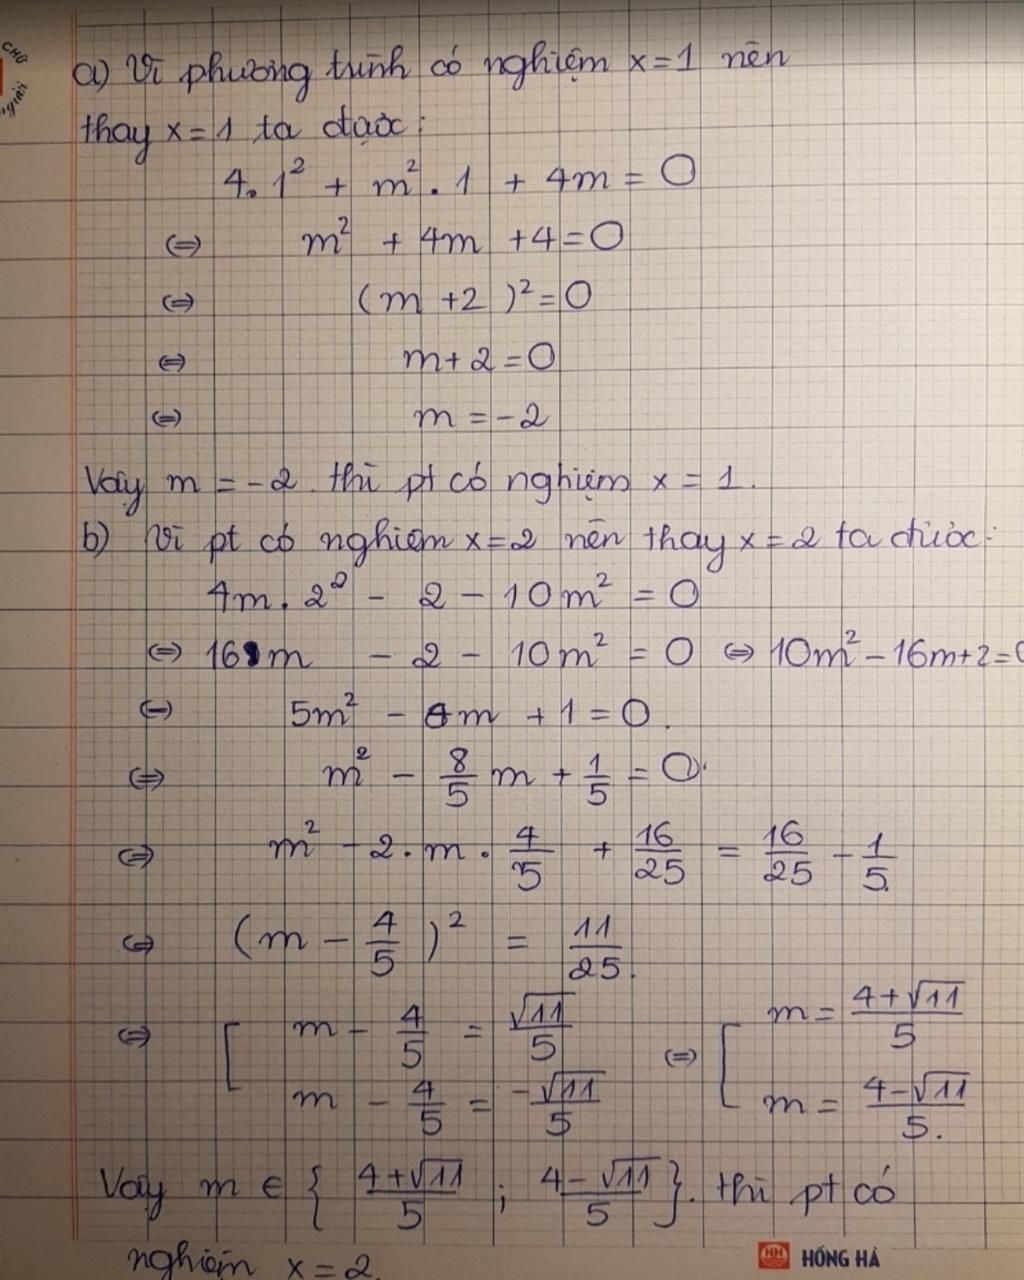 CHỮ
người
a) Vì phương trình có nghiệm x=1 nên
thay x=1 ta được:
4.1² + m².1 + 4m = 0
⇔ m² + 4m + 4 = 0
⇔ (m + 2)² = 0
⇔ m + 2 = 0
⇔ m = -2
Vậy m = -2 thì pt có nghiệm x = 1.
b) Vì pt có nghiệm x=2 nên thay x=2 ta được:
4m.2² - 2 - 10m² = 0
⇔ 16m - 2 - 10m² = 0 ⇔ 10m² - 16m + 2 = 0
⇔ 5m² - 8m + 1 = 0.
⇔ m² - 8/5 m + 1/5 = 0.
⇔ m² - 2.m.4/5 + 16/25 = 16/25 - 1/5.
⇔ (m - 4/5)² = 11/25.
⇔ [ m - 4/5 = √11/5 ⇔ [ m = (4+√11)/5
m - 4/5 = -√11/5 m = (4-√11)/5.
Vậy m ∈ { (4+√11)/5 ; (4-√11)/5 }. thì pt có
nghiệm x = 2.
HH HỒNG HÀ